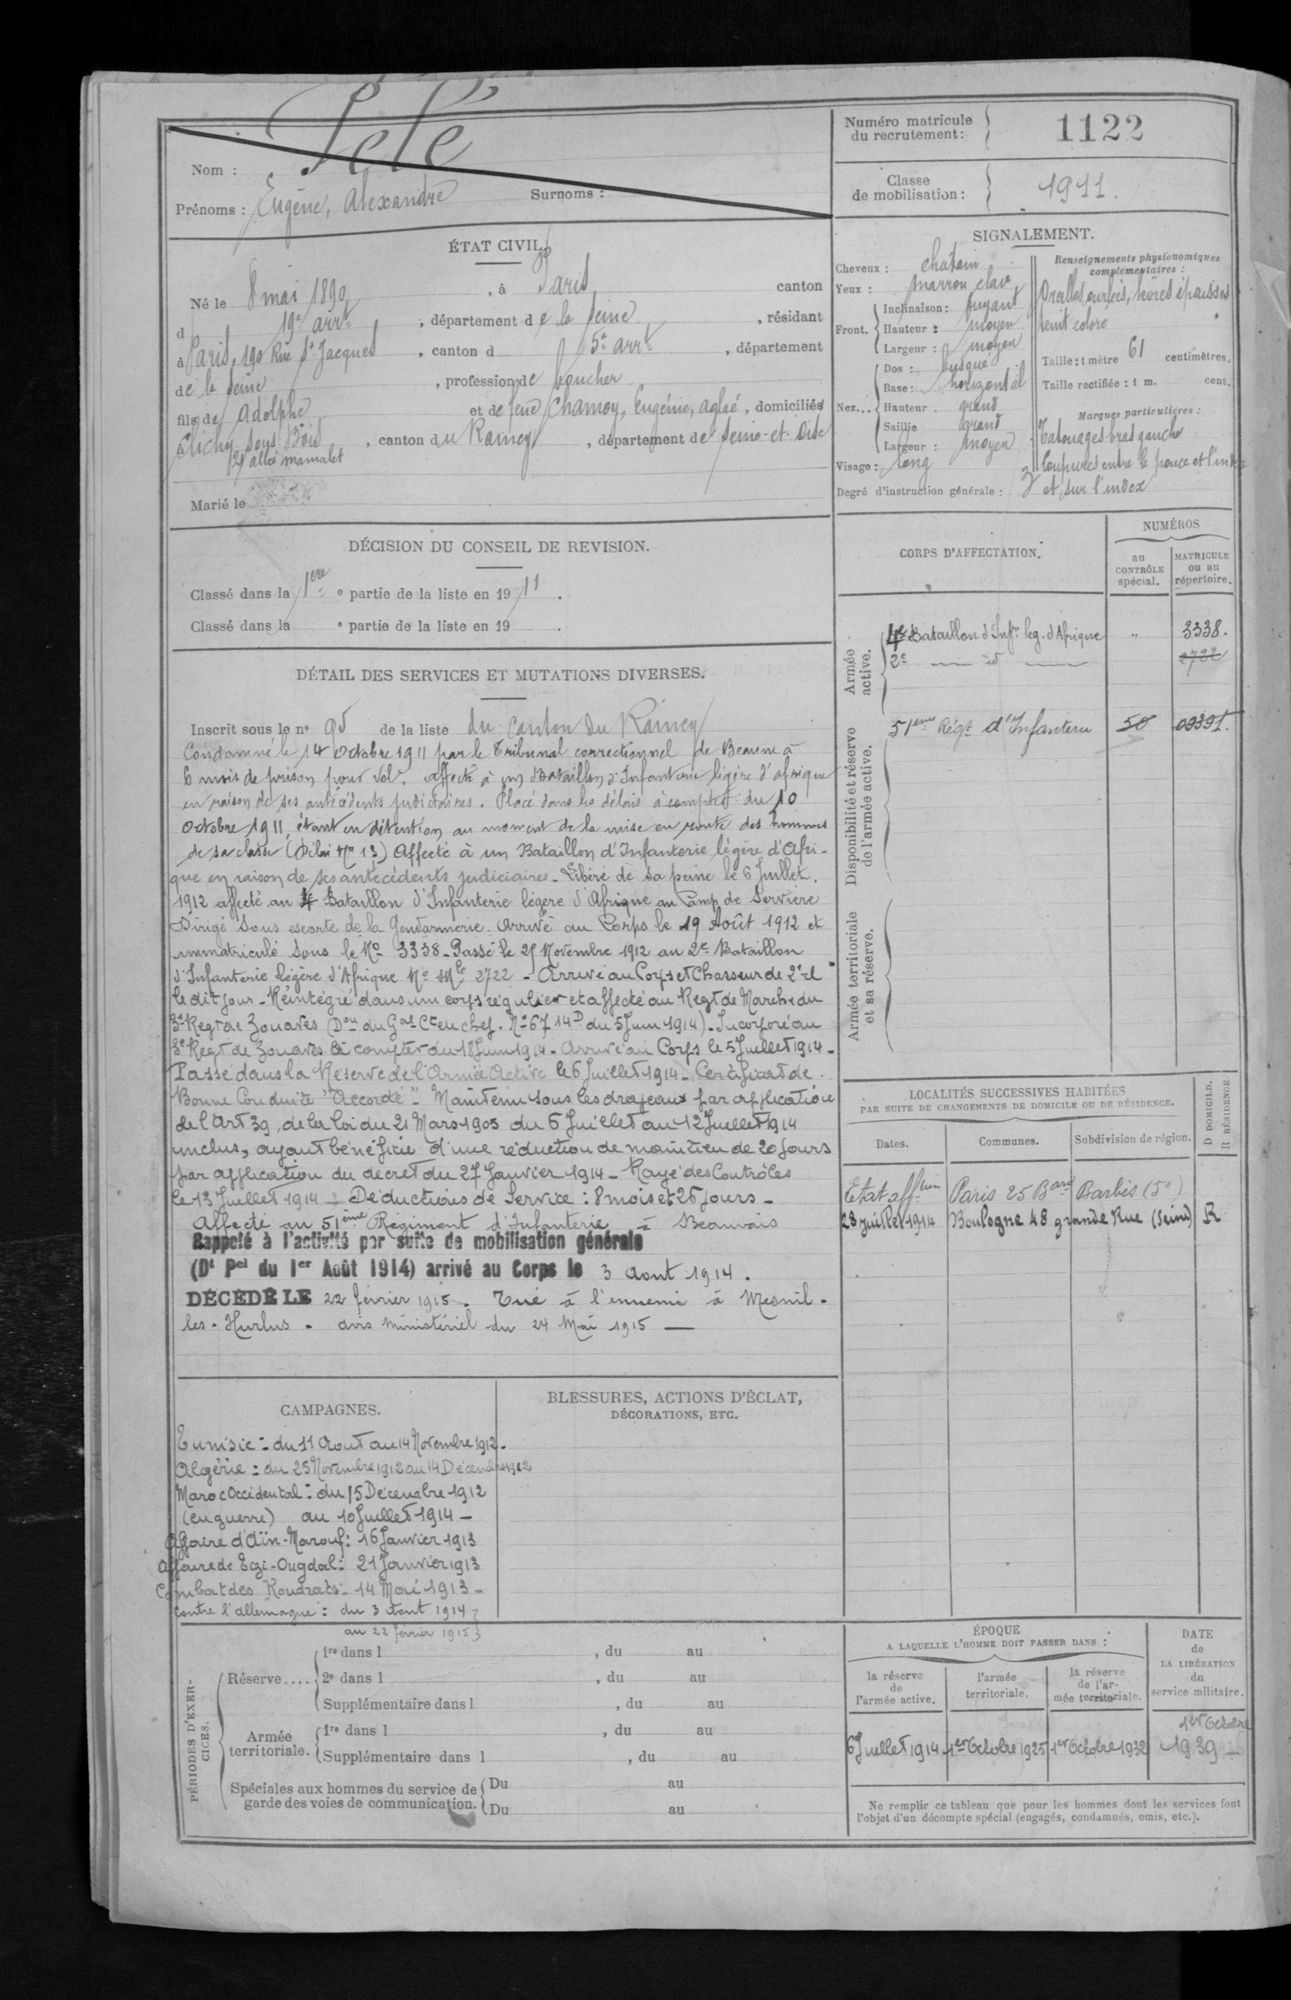 Nom : Pelé
Prénoms : Eugène, Alexandre Surnoms :
Numéro matricule du recrutement : 1122
Classe de mobilisation : 1911.
ÉTAT CIVIL.
Né le 8 mai 1890, à Paris canton
d 19e arrt, département de la Seine, résidant
à Paris, 190 Rue St Jacques, canton d 5e arrt, département
de la Seine, profession de boucher
fils de Adolphe et de feue Chamoy, Eugénie, aglaé, domiciliés
à Clichy sous Bois, canton du Raincy, département de Seine-et-Oise
21 allée mamalet
Marié le
SIGNALEMENT.
Cheveux : chatain
Yeux : marron clair
Front. Inclinaison : fuyant
Hauteur : moyen
Largeur : moyen
Nez... Dos : busqué
Base : horizontal
Hauteur grand
Saillie grand
Largeur : moyen
Visage : long
Renseignements physionomiques complémentaires :
Oreilles ourlées, lèvres épaisses
teint coloré
Taille : 1 mètre 61 centimètres.
Taille rectifiée : 1 m. cent.
Marques particulières :
Tatouages bras gauche
Coupures entre le pouce et l'index
et sur l'index
Degré d'instruction générale : 3
DÉCISION DU CONSEIL DE REVISION.
Classé dans la 1ère e partie de la liste en 1911.
Classé dans la e partie de la liste en 19 .
DÉTAIL DES SERVICES ET MUTATIONS DIVERSES.
Inscrit sous le n° 95 de la liste du Canton du Raincy
Condamné le 14 Octobre 1911 par le Tribunal correctionnel de Beaune à
6 mois de prison pour vol. affecté à un Bataillon d'Infanterie légère d'afrique
en raison de ses antécédents judiciaires. Placé dans les délais à compter du 10
Octobre 1911, étant en détention au moment de la mise en route des hommes
de sa classe (Délai No 13) Affecté à un Bataillon d'Infanterie légère d'Afri-
que en raison de ses antécédents judiciaires. Libéré de sa peine le 6 Juillet
1912 affecté au 4e Bataillon d'Infanterie légère d'Afrique au Camp de Servière
Dirigé sous escorte de la Gendarmerie. Arrivé au Corps le 19 Août 1912 et
immatriculé sous le No 3338 - Passé le 25 Novembre 1912 au 2e Bataillon
d'Infanterie légère d'Afrique No Mle 2722 - Arrivé au Corps et Chasseur de 2e cl
le dit jour - Réintégré dans un corps régulier et affecté au Regt de Marche du
3e Regt de Zouaves (Don du Gal Ct en chef. No 67 14D du 5 Juin 1914). Incorporé au
3e Regt de Zouaves à compter du 18 Juin 1914 - Arrivé au Corps le 5 Juillet 1914 -
Passé dans la Réserve de l'Armée Active le 6 Juillet 1914 - Certificat de
Bonne Conduite "Accordé" - Maintenu sous les drapeaux par application
de l'Art 39, de la loi du 21 Mars 1905 du 6 Juillet au 12 Juillet 1914
inclus, ayant bénéficié d'une réduction de maintien de 20 jours
par application du décret du 27 Janvier 1914 - Rayé des Contrôles
le 13 Juillet 1914 - Déductions de Service : 8 mois et 26 jours -
Affecté au 51ème Régiment d'Infanterie à Beauvais
Rappelé à l'activité par suite de mobilisation générale
(Dt Pel du 1er Août 1914) arrivé au Corps le 3 aout 1914.
DÉCÉDÉ LE 22 février 1915. Tué à l'ennemi à Mesnil-
les-Hurlus. avis ministériel du 24 Mai 1915 -
CORPS D'AFFECTATION.
NUMÉROS
au CONTRÔLE spécial.
MATRICULE ou au répertoire.
Armée active.
4e Bataillon d'Infie leg. d'Afrique " 3338.
2e id 2722
Disponibilité et réserve de l'armée active.
51ème Régt d'Infanterie 50 09391.
Armée territoriale et sa réserve.
LOCALITÉS SUCCESSIVES HABITÉES
PAR SUITE DE CHANGEMENTS DE DOMICILE OU DE RÉSIDENCE.
Dates. Communes. Subdivision de région. D DOMICILE. R RÉSIDENCE.
Etat affon Paris 25 Bard Barbès (Se)
28 juillet 1914 Boulogne 48 grande Rue (Seine) R
CAMPAGNES.
Tunisie : du 11 Aout au 14 Novembre 1912.
Algérie : du 25 Novembre 1912 au 14 Décembre 1912
Maroc Occidental : du 15 Décembre 1912
(en guerre) au 10 Juillet 1914 -
Affaire d'Aïn-Marouf : 16 Janvier 1913
Affaire de Tizi-Ougdal : 21 Janvier 1913
Combat des Koudiats - 14 Mai 1913 -
Contre l'allemagne : du 3 Aout 1914
au 22 février 1915
BLESSURES, ACTIONS D'ÉCLAT,
DÉCORATIONS, ETC.
PÉRIODES D'EXERCICES.
Réserve....
1re dans l , du au
2e dans l , du au
Supplémentaire dans l , du au
Armée territoriale.
1re dans l , du au
Supplémentaire dans l , du au
Spéciales aux hommes du service de garde des voies de communication.
Du au
Du au
ÉPOQUE
A LAQUELLE L'HOMME DOIT PASSER DANS :
la réserve de l'armée active.
l'armée territoriale.
la réserve de l'armée territoriale.
DATE de LA LIBÉRATION du service militaire.
6 Juillet 1914 1er Octobre 1925 1er Octobre 1932 1er Octobre 1939 -
Ne remplir ce tableau que pour les hommes dont les services font
l'objet d'un décompte spécial (engagés, condamnés, omis, etc.).